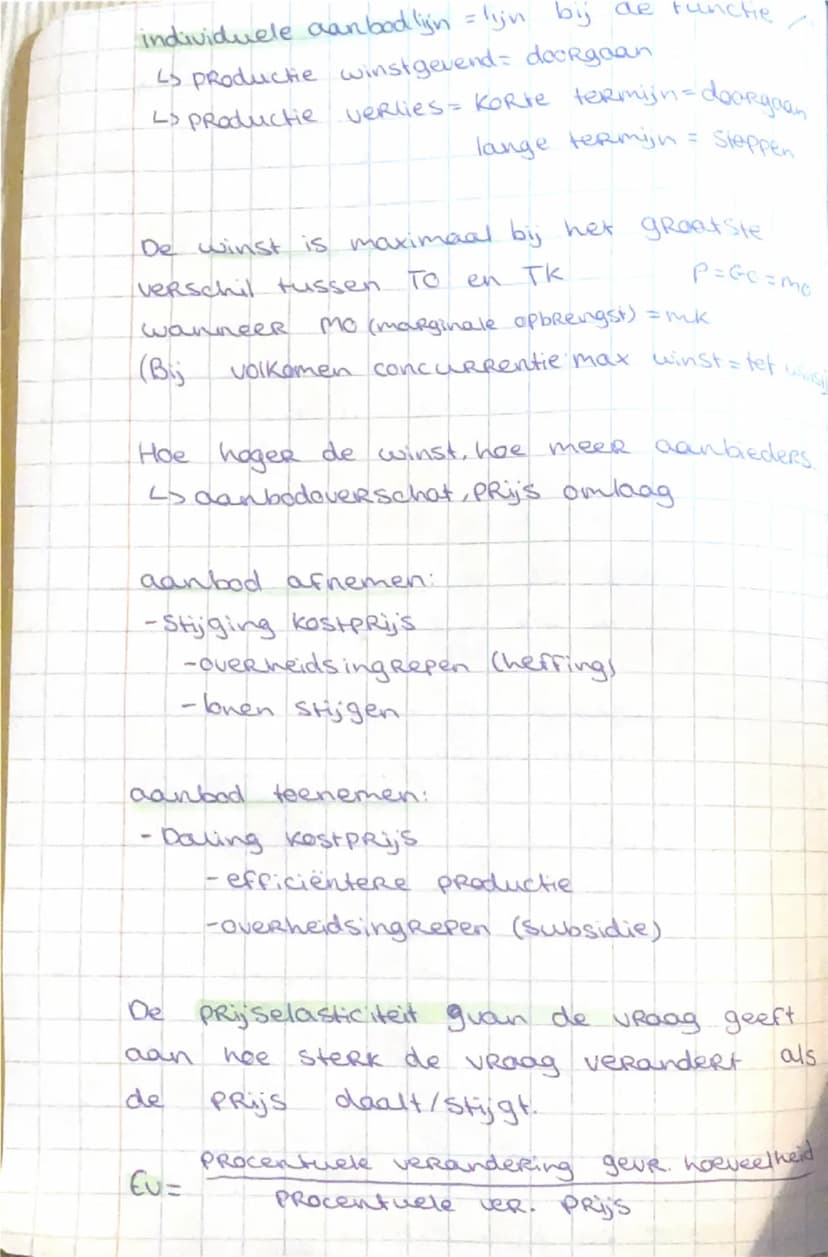 individuele aanbodlijn = lijn bij de functie
↳ productie winstgevend = doorgaan
↳ productie verlies = korte termijn = doorgaan
lange termijn = stoppen
De winst is maximaal bij het grootste
verschil tussen TO en TK P=GO=mo
wanneer MO (marginale opbrengst) = mk
(Bij volkomen concurrentie max winst = tot winst
Hoe hoger de winst, hoe meer aanbieders.
↳ aanbodoverschot, prijs omlaag
aanbod afnemen:
- Stijging kostprijs
- overheidsingrepen (heffing)
- lonen stijgen
aanbod toenemen:
- Daling kostprijs
- efficiëntere productie
- overheidsingrepen (subsidie)
De prijselasticiteit van de vraag geeft
aan hoe sterk de vraag verandert als
de prijs daalt/stijgt.
Ev = procentuele verandering gevr. hoeveelheid
procentuele ver. prijs